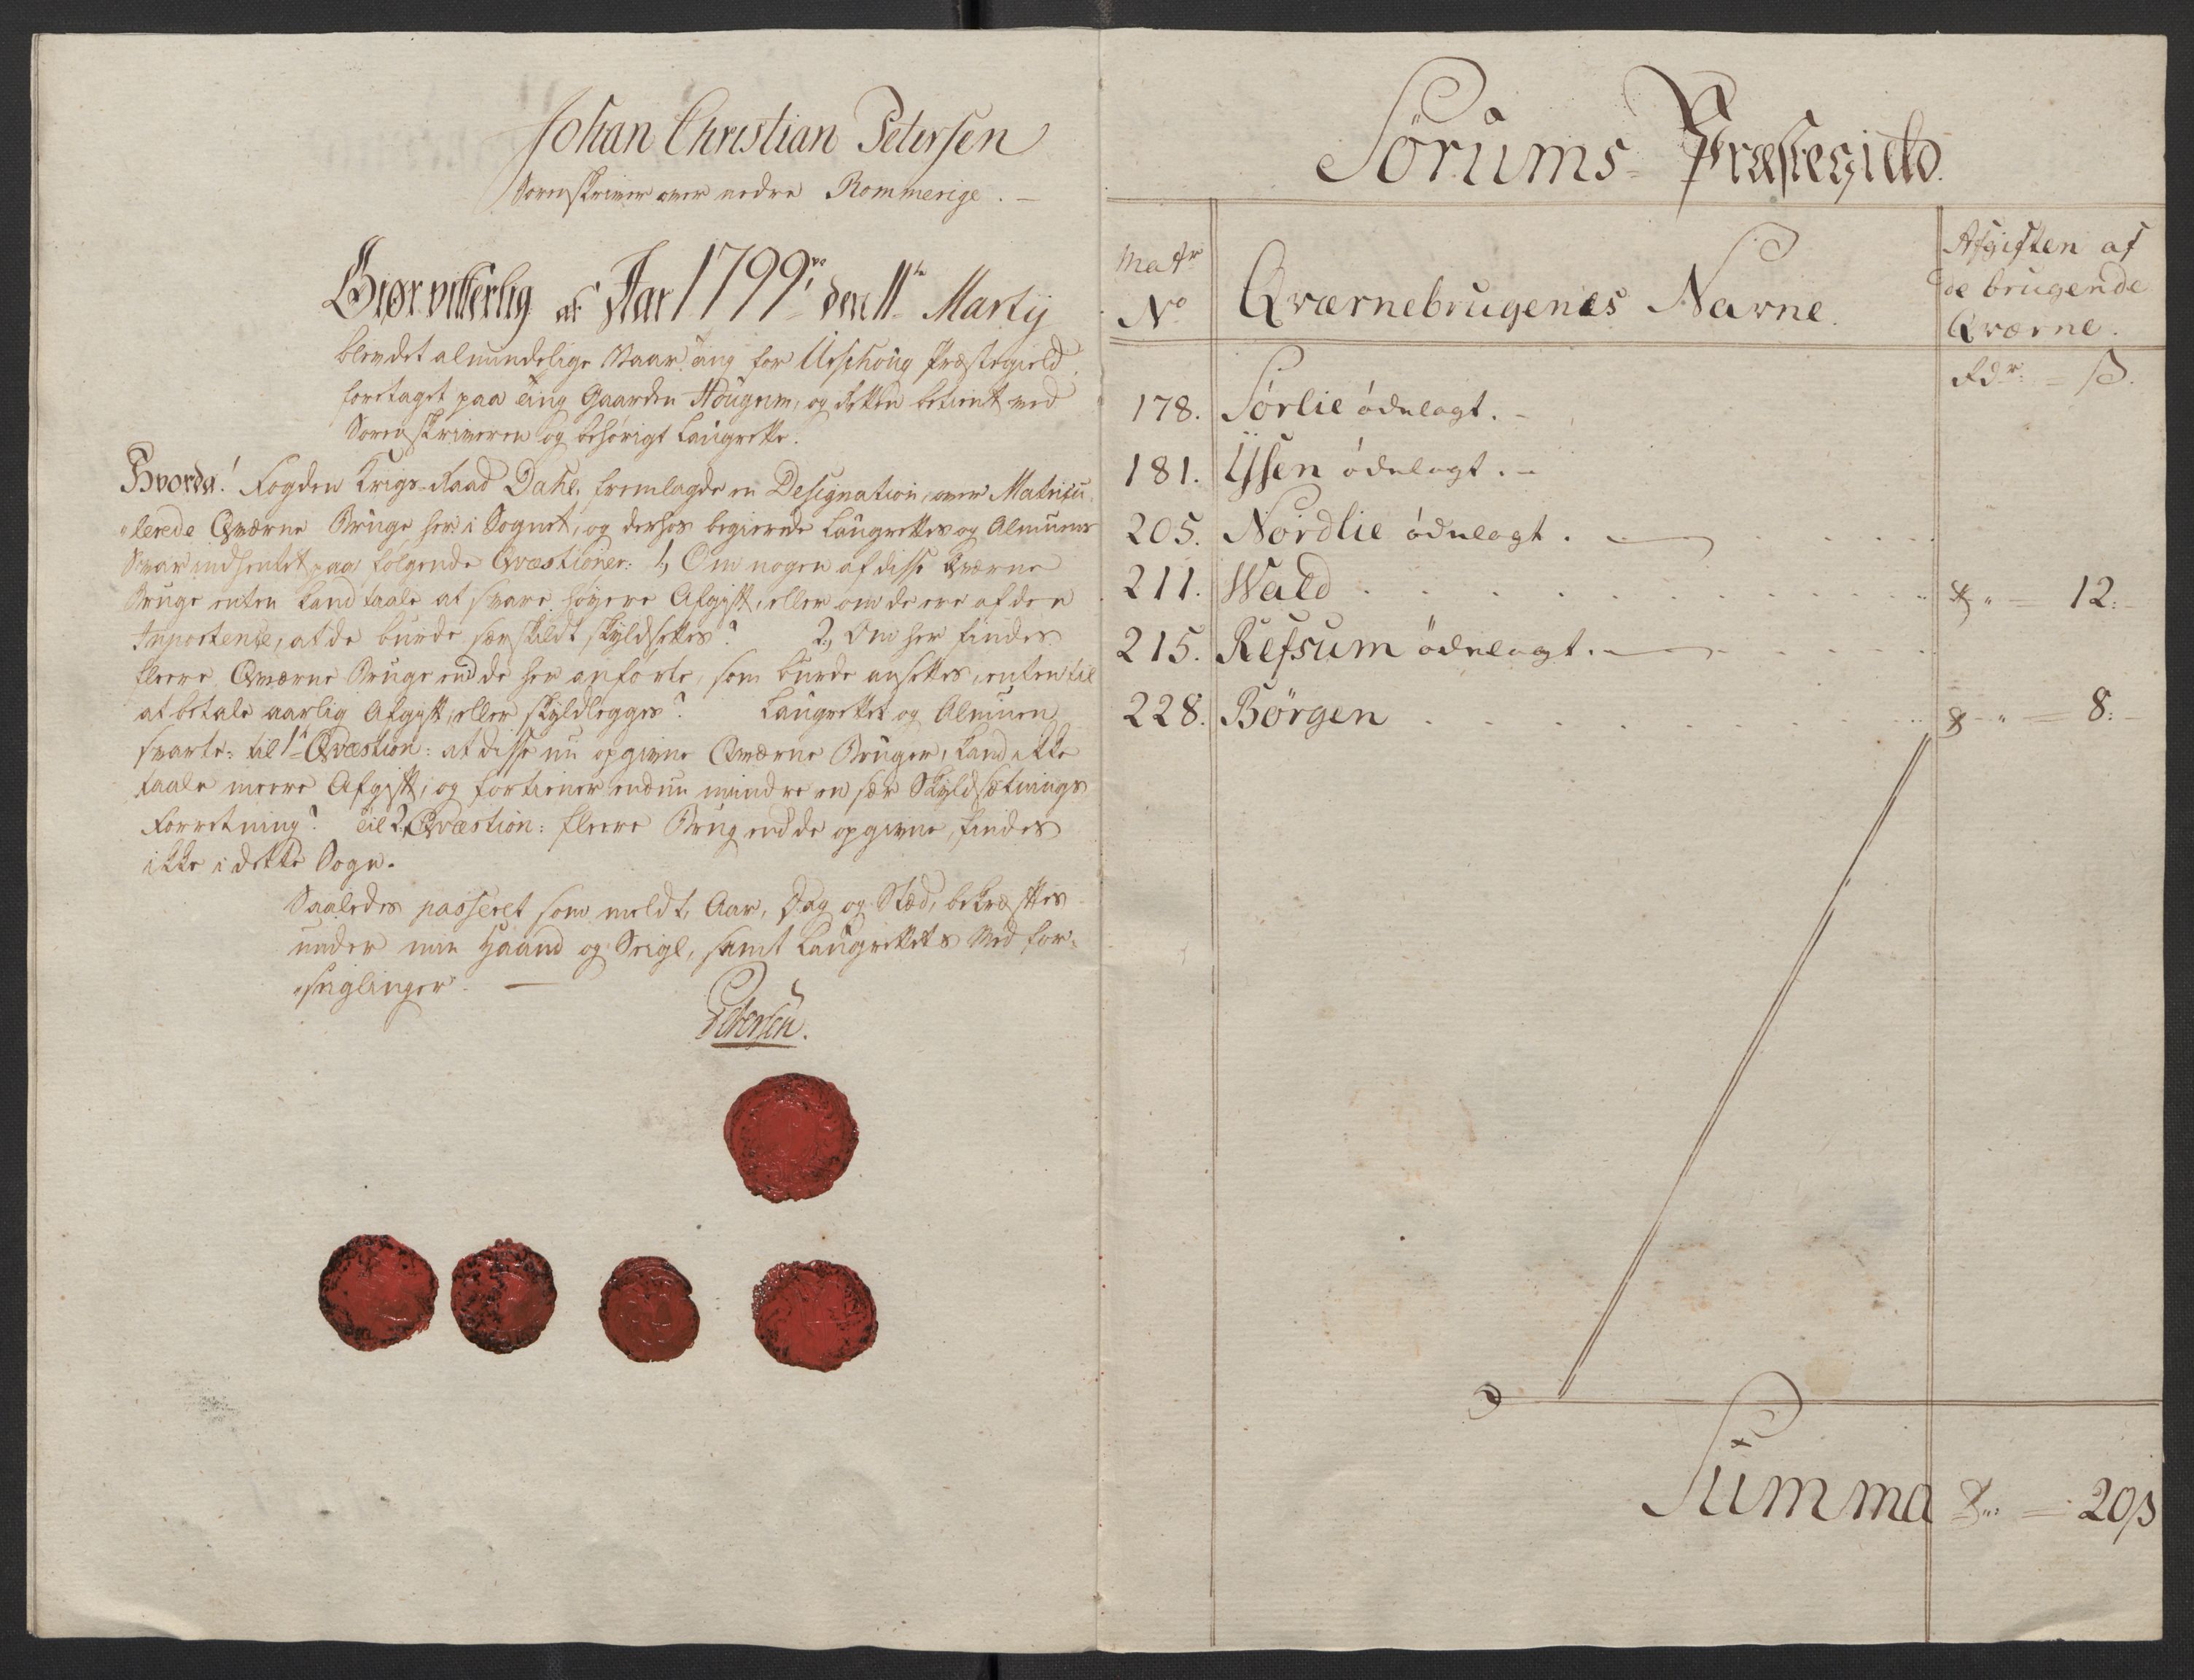 Johan Christian Petersen
Sorenskriver over nedre Rommerige. –
Giør vitterlig at Aar 1799, den 11te Martij
blev det almindelige Vaarting for Urschoug Præstegield,
foretaget paa ting Gaarden Hougrim, og Retten betient med
Sorenskriveren og behørigt Laugrette.
Hvorda! Fogden Krigs-Raad Dahl, fremlagde en Designation, over Matricu-
lerede Qværne Bruge her i Sognet, og derhos begierede Laugrettes og Almuens
Svar indhentet paa følgende Qvæstioner: 1, Om nogen af disse Qværne
Bruge enten kand taale at svare høyere Afgift, eller om de ere af den
Inportence, at de burde særskildt skyldsettes? 2, Om her findes
fleere Qværne Bruge end de her anførte, som burde ansettes, enten til
at betale aarlig Afgift, eller skyldlegges? Laugrettet og Almuen
svarte: til 1te Qvæstion: at disse nu opgivne Qværne Bruger, kand ikke
taale meere Afgift, og fortiener endnu mindre en sær Skyldsætnings
Forretning? Til 2, Qvæstion: fleere Brug end de opgivne, findes
ikke i dette Sogn.
Saaledes passeret som meldt, Aar, Dag og Stæd, bekræftes
under min Haand og Seigl, samt Laugrettets Med for-
seiglinger. –
Petersen.
Sørums Præstegield
Matr
No
Qværnebrugenes Navne.
Afgiften af
de brugende
Qværne.
Rdr. – ß.
178. Sørlie ødelagt. –
181. Ysen ødelagt. –
205. Nordlie ødelagt. –
211. Wald . . . . . " – 12: –
215. Refsum ødelagt. –
228. Børgen . . . . . " – 8: –
Summa – 20ß